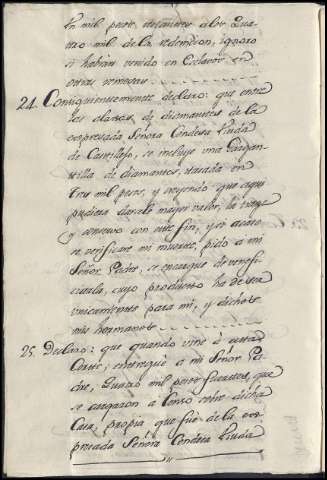 en mil pesos, restantes a los Qua
tro mil de la redempcion, ignoro
si habrán venido en Caxas en
otras remesas.
24. Consiguientemente declaro: que entre
las alaxas de diamantes de la
expresada Señora Condesa Viuda
de Castillejo, se incluye una Gargan
tilla de diamantes, tasada en
tres mil pesos, y creyendo que aqui
pudiera darsele mayor valor, la traxe
y conservo con este fin, y si acaso
se verificare mi muerte, pido a mi
Señor Padre, se encargue de benefi
ciarla, cuyo producto ha de ser
unicamente para mi, y dichos
mis hermanos.
25. Declaro: que quando vine à esta
Corte, entregué a mi Señor Pa
dre, Quatro mil pesos fuertes, que
se cargaron a Censo sobre dicha
Casa, propia que fué de la ex
presada Señora Condesa Viuda